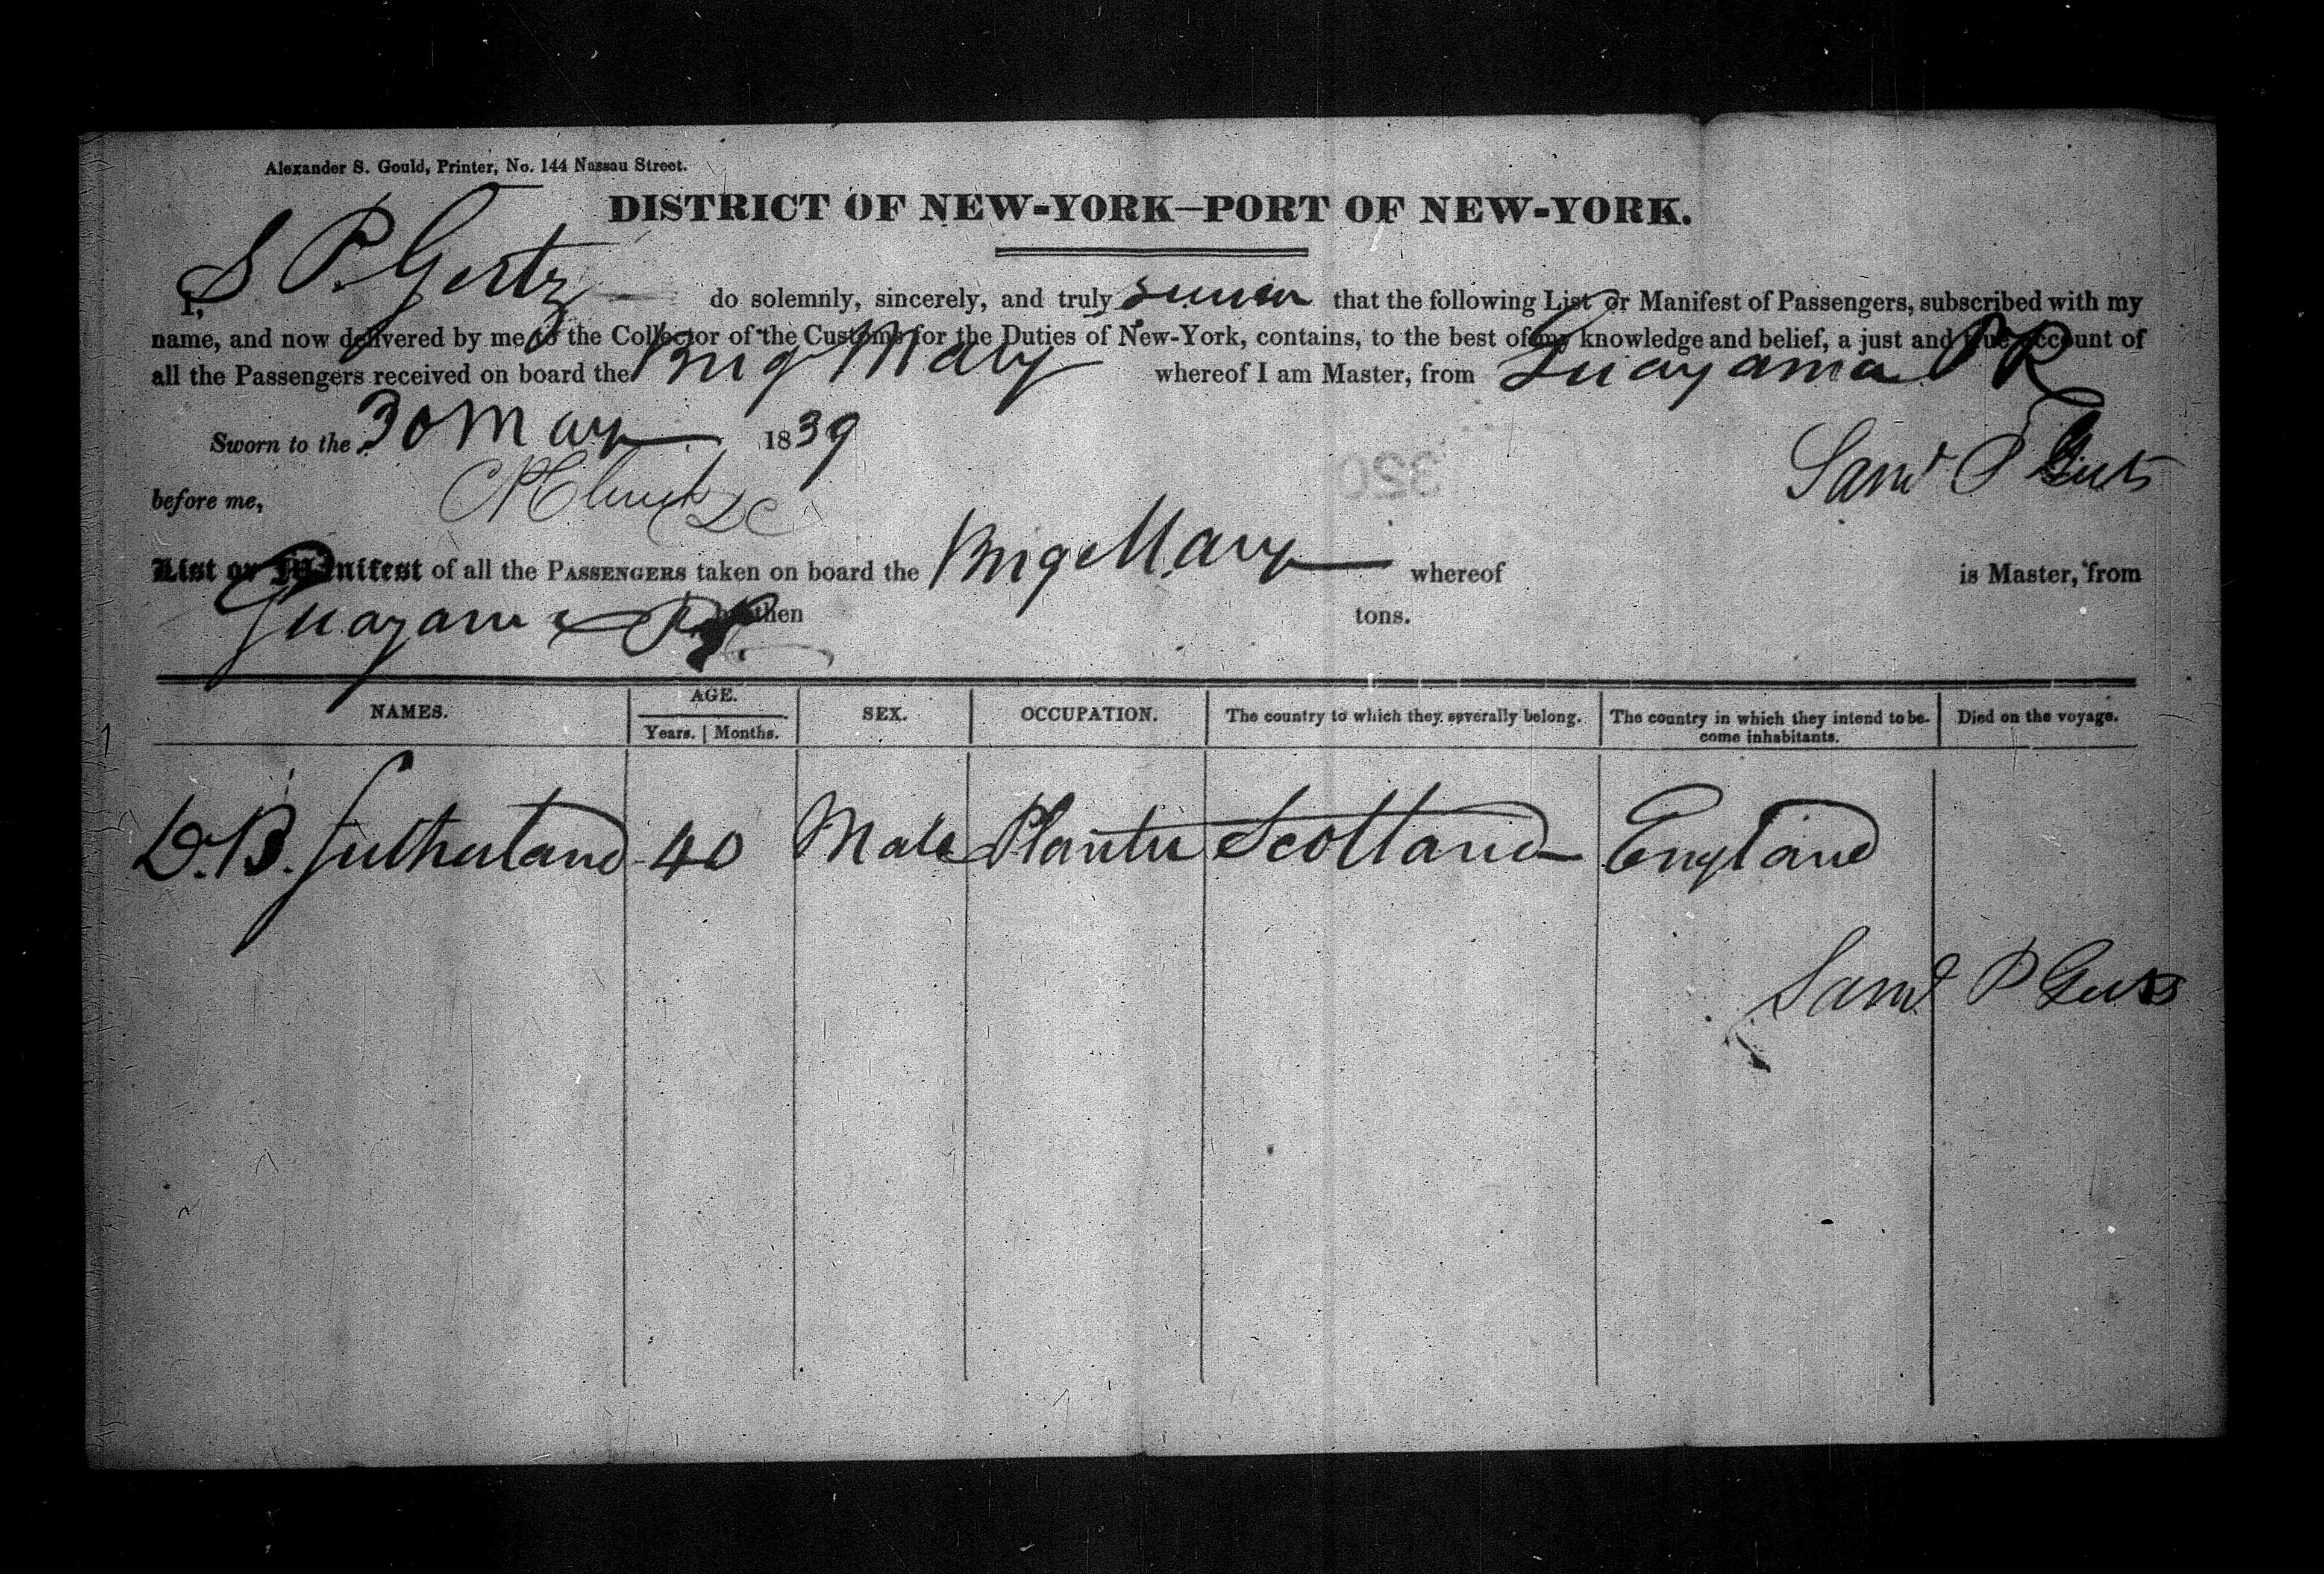 Alexander S. Gould, Printer, No. 144 Nassau Street.
DISTRICT OF NEW-YORK—PORT OF NEW-YORK.
I, S P. Gertz do solemnly, sincerely, and truly swear that the following List or Manifest of Passengers, subscribed with my
name, and now delivered by me to the Collector of the Customs for the Duties of New-York, contains, to the best of my knowledge and belief, a just and true account of
all the Passengers received on board the Brig Mary whereof I am Master, from Guayama PR
Sworn to the 30 May 1839
Saml P
before me,
List or Manifest of all the PASSENGERS taken on board the Brig Mary whereof is Master, from
Guayama PR burthen tons.
NAMES. AGE. SEX. OCCUPATION. The country to which they severally belong. The country in which they intend to be- Died on the voyage.
Years. Months. come inhabitants.
D. B. Sutherland 40 Male Planter Scotland England
Saml P
320